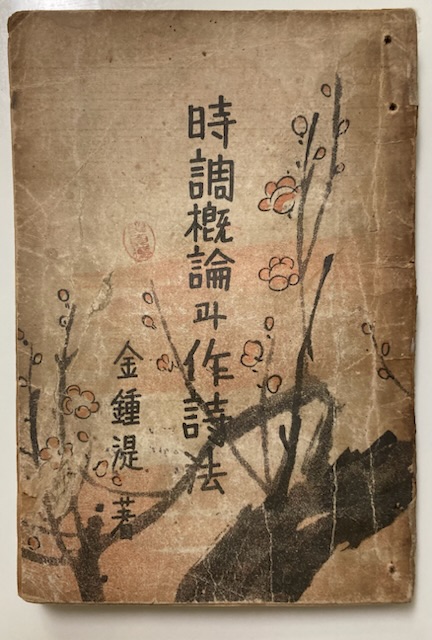 時調槪論과作詩法
金鍾湜 著